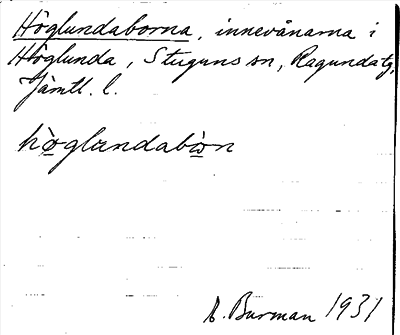 Höglundaborna, innevånarna i
Höglunda, Stuguns sn, Ragundatg,
Jämtl. l.
höglundabòn
E. Burman 1931